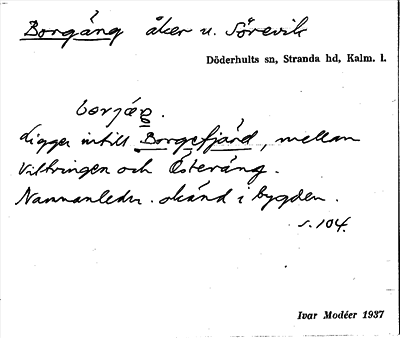 Borgäng åker u. Sörevik
Döderhults sn, Stranda hd, Kalm. l.
ligger intill Borgefjärd, mellan
Viltringen och Österäng.
Namnanledn. okänd i bygden.
s. 104.
Ivar Modéer 1937